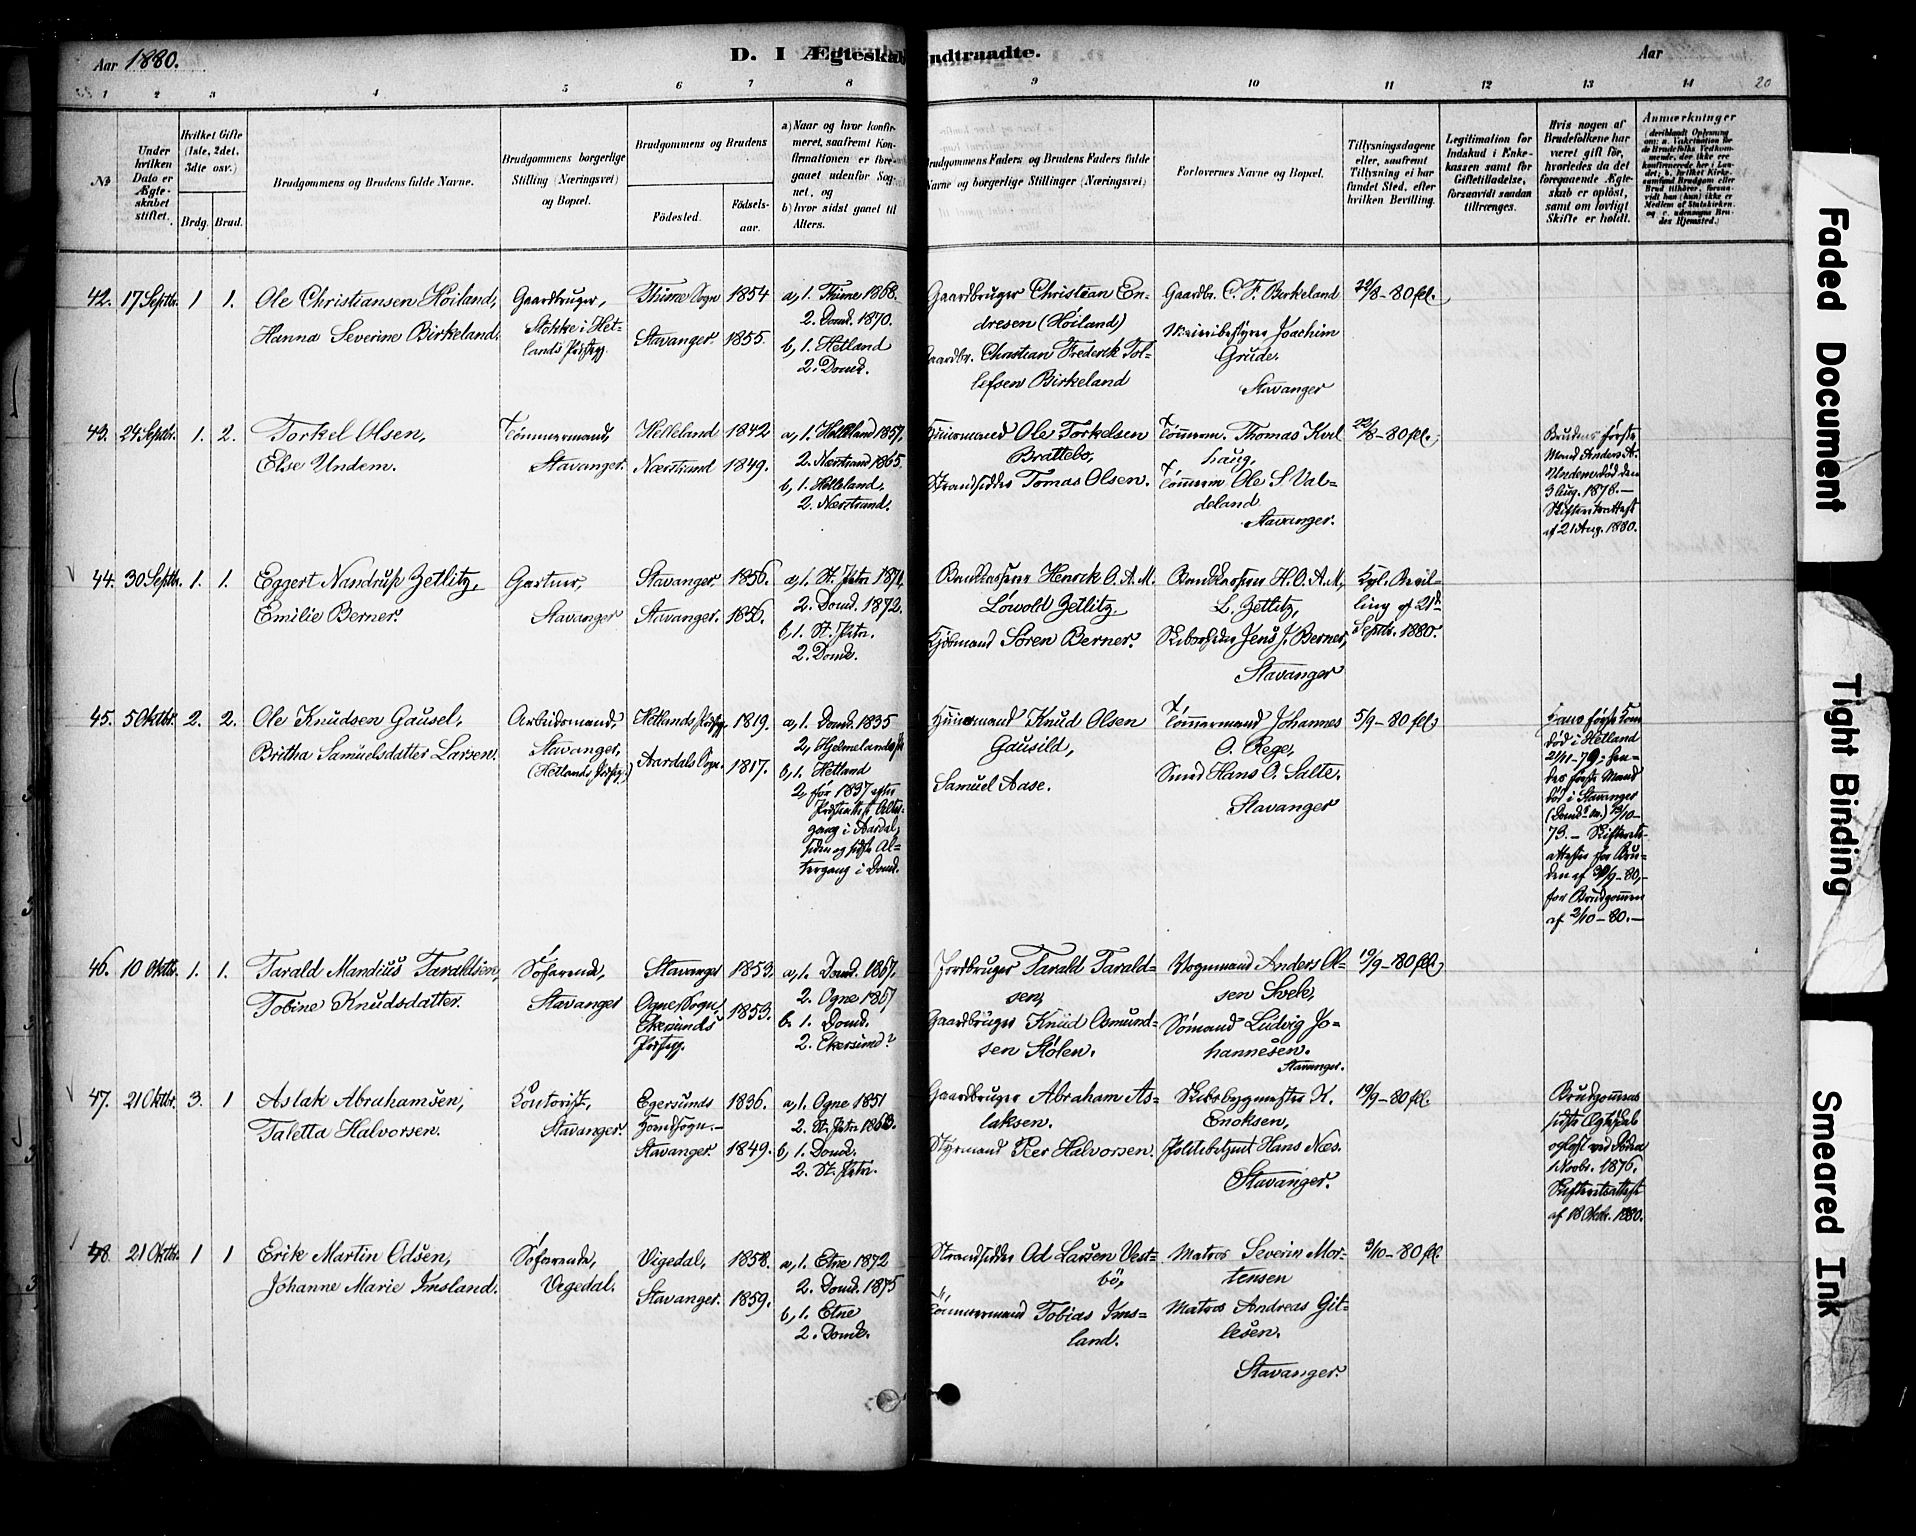 Aar 1880.
D. I Ægteskab Indtraadte.
Aar
1 2 3 4 5 6 7 8 9 10 11 12 13 14 20
No
Under hvilken Dato er Ægteskabet stiftet.
Hvilket Gifte (1ste, 2det, 3dte osv.)
Brdg. Brud.
Brudgommens og Brudens fulde Navne.
Brudgommens borgerlige Stilling (Næringsvei) og Bopæl.
Brudgommens og Brudens
Födested. Födsels-aar.
a) Naar og hvor konfirmeret, saafremt Konfirmationen er foregaaet udenfor Sognet, og
b) hvor sidst gaaet til Alters.
Brudgommens Faders og Brudens Faders fulde Navne og borgerlige Stillinger (Næringsvei)
Forlovernes Navne og Bopæl.
Tillysningsdagene eller, saafremt Tillysning ei har fundet Sted, efter hvilken Bevilling.
Legitimation for Indskud i Enkekassen samt for Giftetilladelse, forsaavidt saadan tiltrænges.
Hvis nogen af Brudefolkene har været gift för, hvorledes da det foregaaende Ægteskab er oplöst, samt om lovligt Skifte er holdt.
Anmærkninger
42. 17 Septbr. 1 1.
Ole Christiansen Höiland,
Hanna Severine Birkeland.
Gaardbruger,
Stokke i Hetlands Prstgj.
Thime Sogn 1854
Stavanger 1855.
a, 1. Thime 1868.
2. Domk. 1870.
b, 1. Hetland
2. Domk.
Gaardbruger Christian Endresen (Höiland)
Gaardbr. Christian Frederik Tollefsen Birkeland
Gaardbr. C. F. Birkeland
Meieribestyrer Joachim Grude.
Stavanger
22/8 - 80 fl.
43. 24 Septbr. 1. 2.
Torkel Olsen,
Else Undem.
Tömmermand,
Stavanger.
Helleland 1842
Nærstrand 1849.
a, 1. Helleland 1857.
2. Nærstrand 1865.
b, 1. Helleland,
2. Nærstrand.
Huusmand Ole Torkelsen Brattebo,
Strandsidder Tomas Olsen.
Tömrerm. Thomas Kvalhaug.
Tömrerm Ole S Valdeland
Stavanger.
22/8 - 80 fl.
Brudens förste Mand Anders A. Undem död den 3 Aug. 1878. - Skifteretsattest af 21 Aug. 1880.
44. 30 Septbr. 1. 1.
Eggert Nandrup Zetlitz,
Emilie Berner.
Gartner,
Stavanger
Stavanger. 1856.
Stavanger. 1856.
a, 1. St. Petri 1871.
2. Domk. 1872.
b, 1. St. Petri.
2. Domk.
Bankkasserer Henrik O. A. M. Löwold Zetlitz.
Kjöbmand Sören Berner.
Bankkasserer H. O. A. M. L. Zetlitz,
Skibsreder Jens J. Berner,
Stavanger
Kgl. Bevilling af 21de Septbr. 1880.
45. 5 Oktbr. 2. 2.
Ole Knudsen Gausel,
Britha Samuelsdatter Larsen.
Arbeidsmand,
Stavanger,
(Hetlands Prstgj.)
Hetlands Prstgj. 1819.
Aardals Sogn. 1817.
a, 1. Domk. 1835
2, Hjelmelands
b, 1. Hetland
2, før 1837 efter Altergang i Aardal, siden og sidste Altergang i Domk.
Huusmand Knud Olsen Gausild,
Samuel Aase.
Tömmermand Johannes O. Rege,
Smed Hans O. Salte.
Stavanger
5/9 - 80 fl.
Hans förste Kone död i Hetland 2/11-79; hendes förste Mand död i Stavanger (Domk. m.) 19/10-73. - Skifteretsattester for Bruden af 30/9-80, - for Brudgommen af 2/10-80. -
46. 10 Oktbr. 1. 1.
Tarald Mandius Taraldsen,
Tobine Knudsdatter.
Söfarende,
Stavanger
Stavanger 1853.
Ogne Sogn, Ekersunds Prstgj. 1853.
a, 1. Domk. 1867.
2. Ogne 1867
b. 1. Domk.
2. Ekersund?
Jordbruger Tarald Taraldsen,
Gaardbruger Knud Osmundsen Stölen.
Vognmand Anders Olsen Svele,
Sömand Ludvig Johannesen.
Stavanger.
19/9 - 80 fl.
47. 21 Oktbr. 3. 1
Aslak Abrahamsen,
Taletta Halvorsen.
Kontorist,
Stavanger.
Egersunds Hovedsogn. - 1836.
Stavanger. 1849.
a, 1. Ogne 1851
2. St. Petri 1863.
b, 1. Domk.
2. St. Petri.
Gaardbruger Abraham Aslaksen.
Styrmand Peer Halvorsen.
Skibsbygmester K. Enoksen,
Politibetjent Hans Næs.
Stavanger.
19/9 - 80 fl.
Brudgommens sidste Ægteskab oplöst ved Döden 1 Novbr. 1876. Skifteretsattest af 18 Oktbr. 1880.
48. 21 Oktbr. 1 1
Erik Martin Odsen,
Johanne Marie Imsland.
Söfarende,
Vigedal.
Vigedal, 1858.
Stavanger. 1859.
a, 1. Etne 1872
2. Domk. 1875
b, 1. Etne
2. Domk.
Strandsidder Od Larsen Vestbö,
Tömmermand Tobias Imsland.
Matros Severin Mortensen
Matros Andreas Gitlesen.
Stavanger.
3/10 - 80 fl.
Faded Document
Tight Binding
Smeared Ink